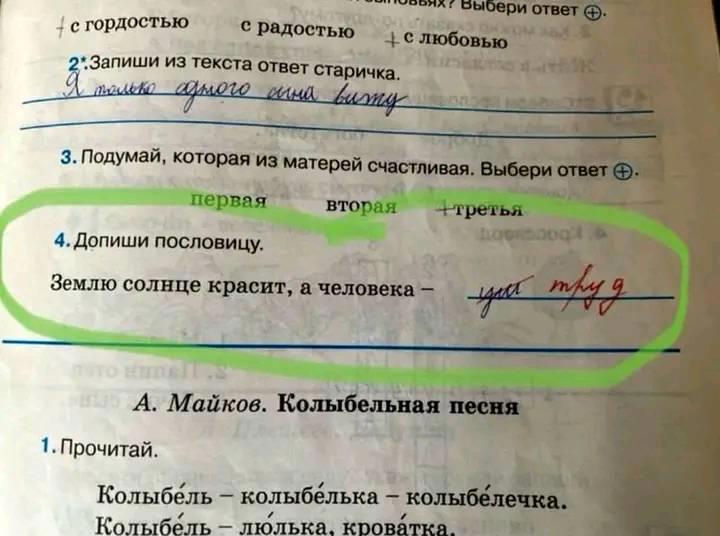 Выбери ответ ⊕.
с гордостью с радостью + с любовью
2*.Запиши из текста ответ старичка.
Я только одного сына вижу
3. Подумай, которая из матерей счастливая. Выбери ответ ⊕.
первая вторая +третья
4. Допиши пословицу.
Землю солнце красит, а человека – труд
А. Майков. Колыбельная песня
1. Прочитай.
Колыбе́ль – колыбе́лька – колыбе́лечка.
Колыбе́ль – лю́лька, крова́тка.